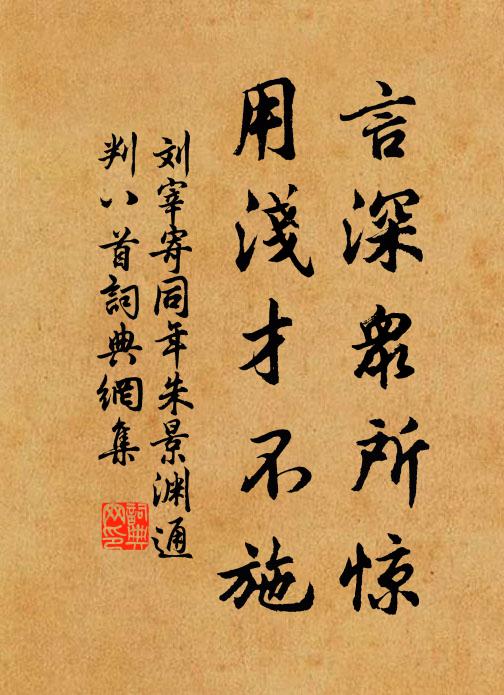 言深衆所惊
用淺才不施
刘宰寄同年朱景渊通
判八首詞典網集
詞典网印